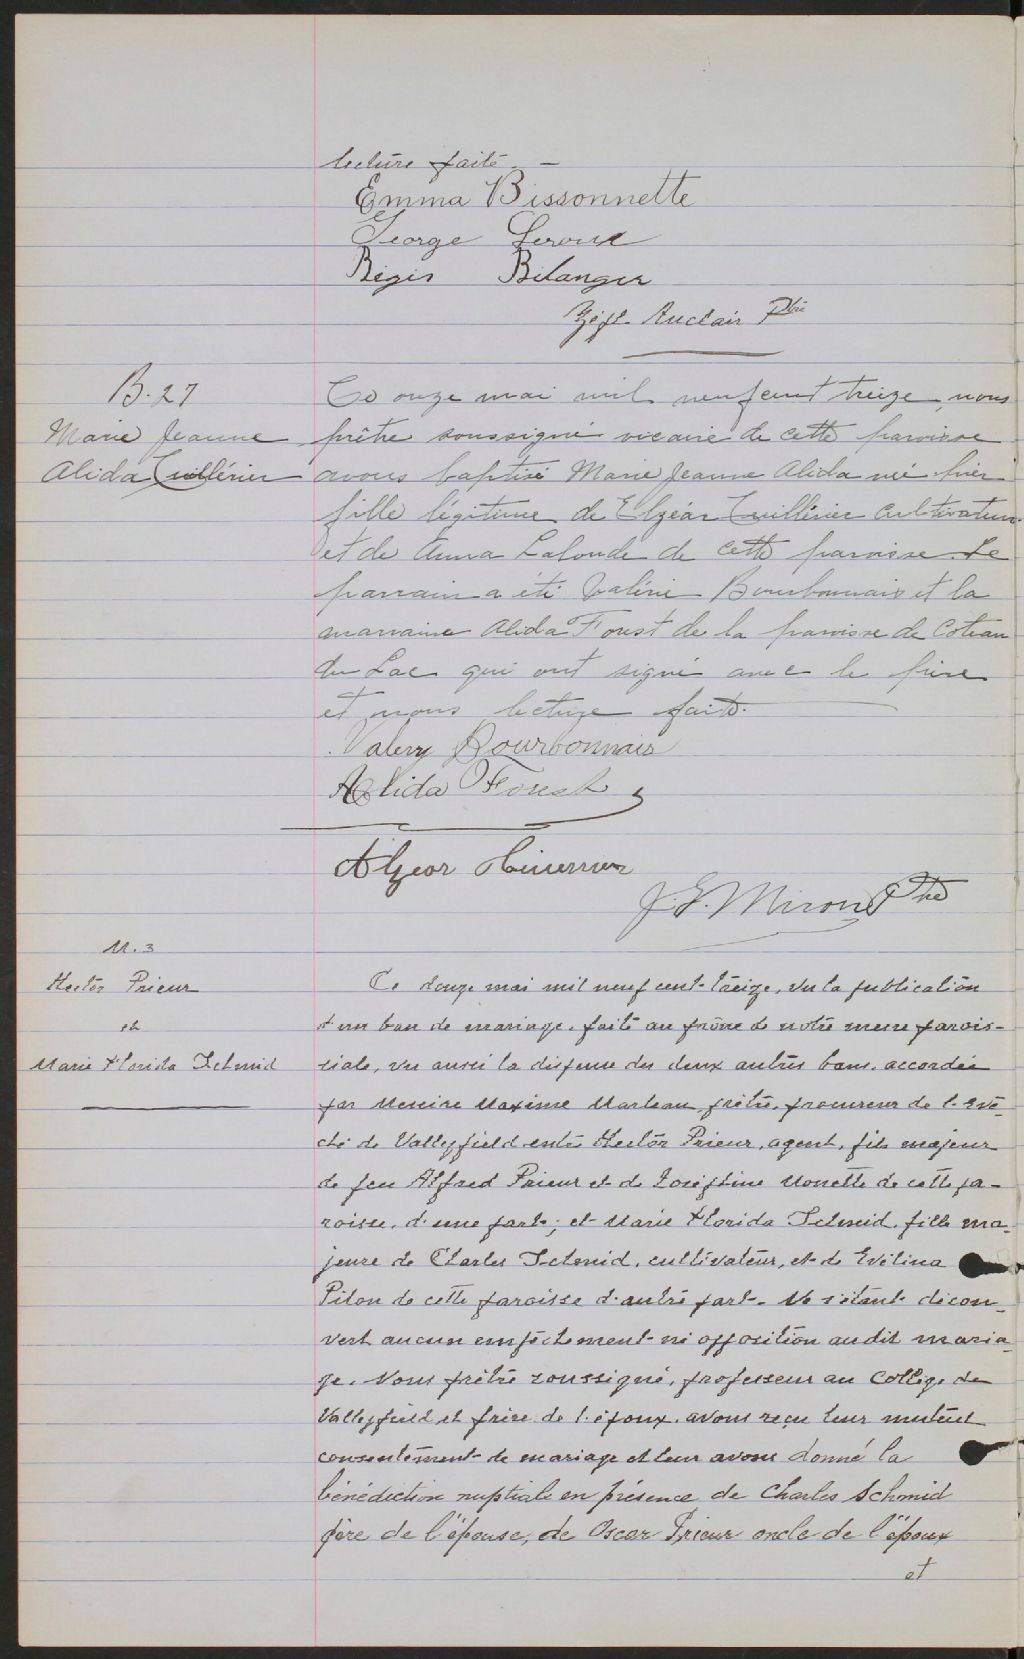 lecture faite. —
Emma Bissonnette
George Leroux
Régis Bélanger
Zéph Auclair Ptre
B. 27
Marie Jeanne
Alida Cuillérier
Ce onze mai mil neuf cent treize, nous
prêtre soussigné vicaire de cette paroisse
avons baptisé Marie Jeanne Alida née hier
fille légitime de Elzéar Cuillérier cultivateur
et de Anna Lalonde de cette paroisse. Le
parrain a été Valérie Bourbonnais et la
marraine Alida Foust de la paroisse de Coteau
du Lac qui ont signé avec le père
et nous lecture faite.
Valery Bourbonnais
Alida
J. E. Miron Ptre
M. 3
Hector Prieur
et
Marie Florida Schmid
Ce douze mai mil neuf cent-treize, vu la publication
d'un ban de mariage, faite au prône de notre messe parois-
siale, vu aussi la dispense des deux autres bans, accordée
par Messire Maxime Marleau, prêtre, procureur de l'Evê-
ché de Valleyfield entre Hector Prieur, agent, fils majeur
de feu Alfred Prieur et de Joséphine Monette de cette pa-
roisse, d'une part; et Marie Florida Schmid, fille ma-
jeure de Charles Schmid, cultivateur, et de Evélina
Pilon de cette paroisse d'autre part. Ne s'étant découv-
vert aucun empêchement ni opposition audit maria-
ge. Nous prêtre soussigné, professeur au Collège de
Valleyfield et frère de l'époux, avons reçu leur mutuel
consentement de mariage et leur avons donné la
bénédiction nuptiale en présence de Charles Schmid
père de l'épouse, de Oscar Prieur oncle de l'époux
et